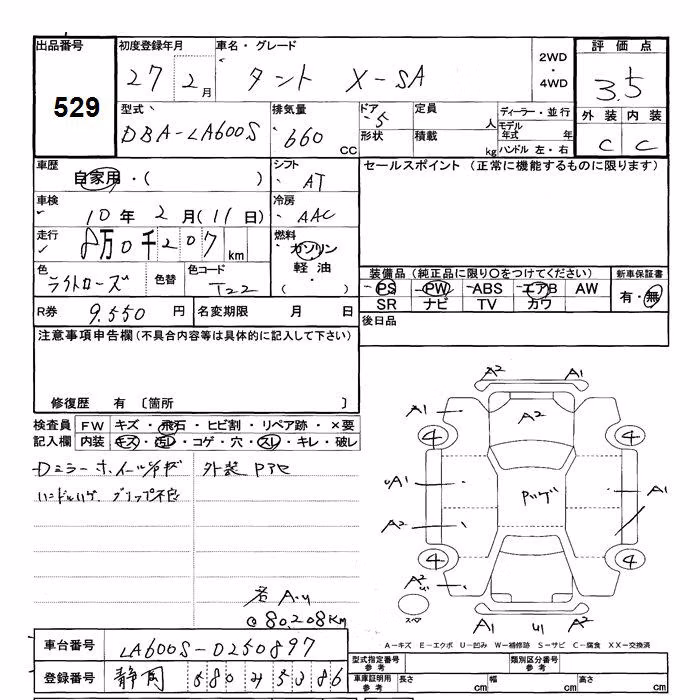 出品番号 初度登録年月 車名・グレード 2WD・4WD 評価点
529 27 2月 タント X-SA 3.5
型式 排気量 ドア 定員 人 ディーラー・並行 外装 内装
DBA-LA600S 660 CC 5 形状 積載 kg モデル年式 年 ハンドル 左・右 C C
車歴 自家用・( ) シフト AT セールスポイント (正常に機能するものに限ります)
車検 10年 2月(11日) 冷房 AAC
走行 8万0千207km 燃料 ガソリン 軽油・( )
色 ライトローズ 色替 色コード T22
装備品(純正品に限り○をつけてください) 新車保証書
PS PW ABS エアB AW 有・無
SR ナビ TV カワ
R券 9,550円 名変期限 月 日 後日品
注意事項申告欄(不具合内容等は具体的に記入して下さい)
修復歴 有 〔箇所 〕
検査員 FW キズ・飛石・ヒビ割・リペア跡・×要
記入欄 内装 キズ・汚レ・コゲ・穴・スレ・キレ・破レ
外装
ハンドルハゲ グリップ不良
A2 A1
A1 A2
4 4
A1 A1
A2
4 4
A2 U
スペア
A1 U1 A2
各A.U
@80,208km
A-キズ E-エクボ U-凹み W-補修跡 S-サビ C-腐食 XX-交換済
車台番号 LA600S-0250897
登録番号 静岡 580 5386
型式指定番号 参考 類別区分番号 参考
車庫証明用 参考 長さ cm 幅 cm 高さ cm